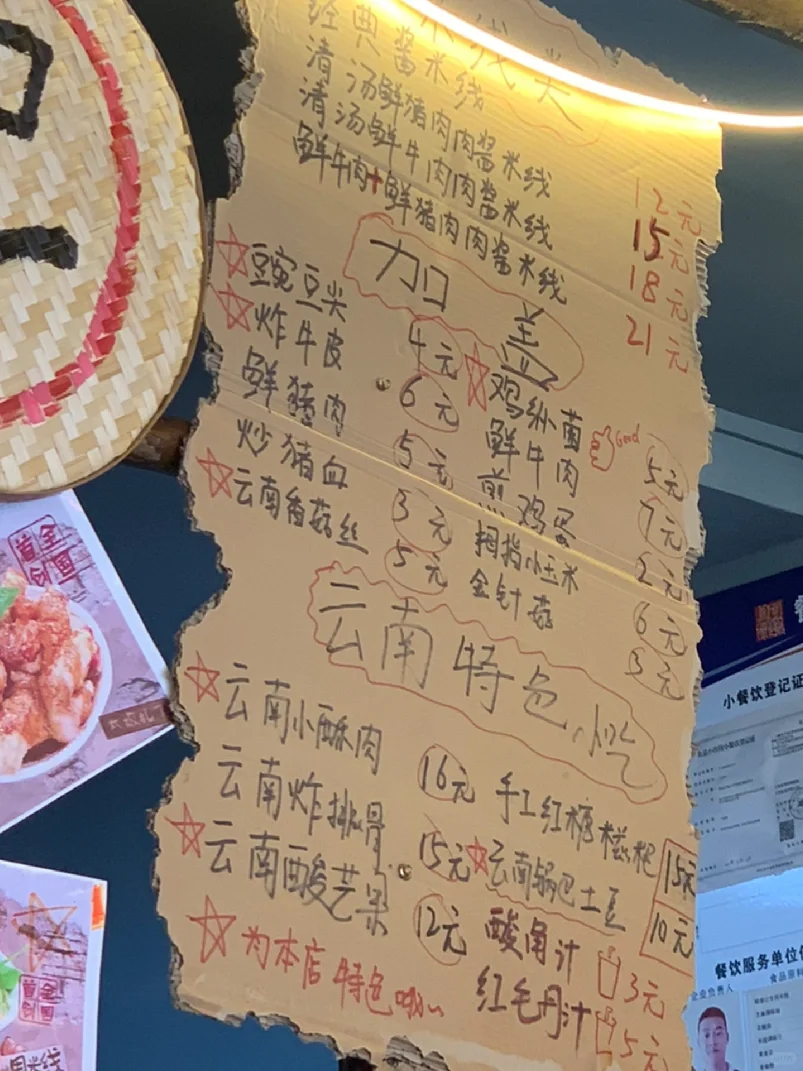 米线类
经典酱米线 12元
清汤鲜猪肉肉酱米线 15元
清汤鲜牛肉肉酱米线 18元
鲜牛肉+鲜猪肉肉酱米线 21元
加盖
豌豆尖 4元
炸牛皮 6元
鲜猪肉 5元
炒猪血 3元
云南香菇丝 5元
鸡枞菌 Good 5元
鲜牛肉 7元
煎鸡蛋 2元
拇指小玉米 6元
金针菇 3元
云南特色小吃
云南小酥肉 16元
云南炸排骨 15元
云南酸芒果 12元
手工红糖糍粑 15元
云南锅巴土豆 10元
酸角汁 3元
红毛丹汁 5元
为本店特色哦~
全国首创
小餐饮登记证
餐饮服务单位
企业负责人
食品原料
全国首创